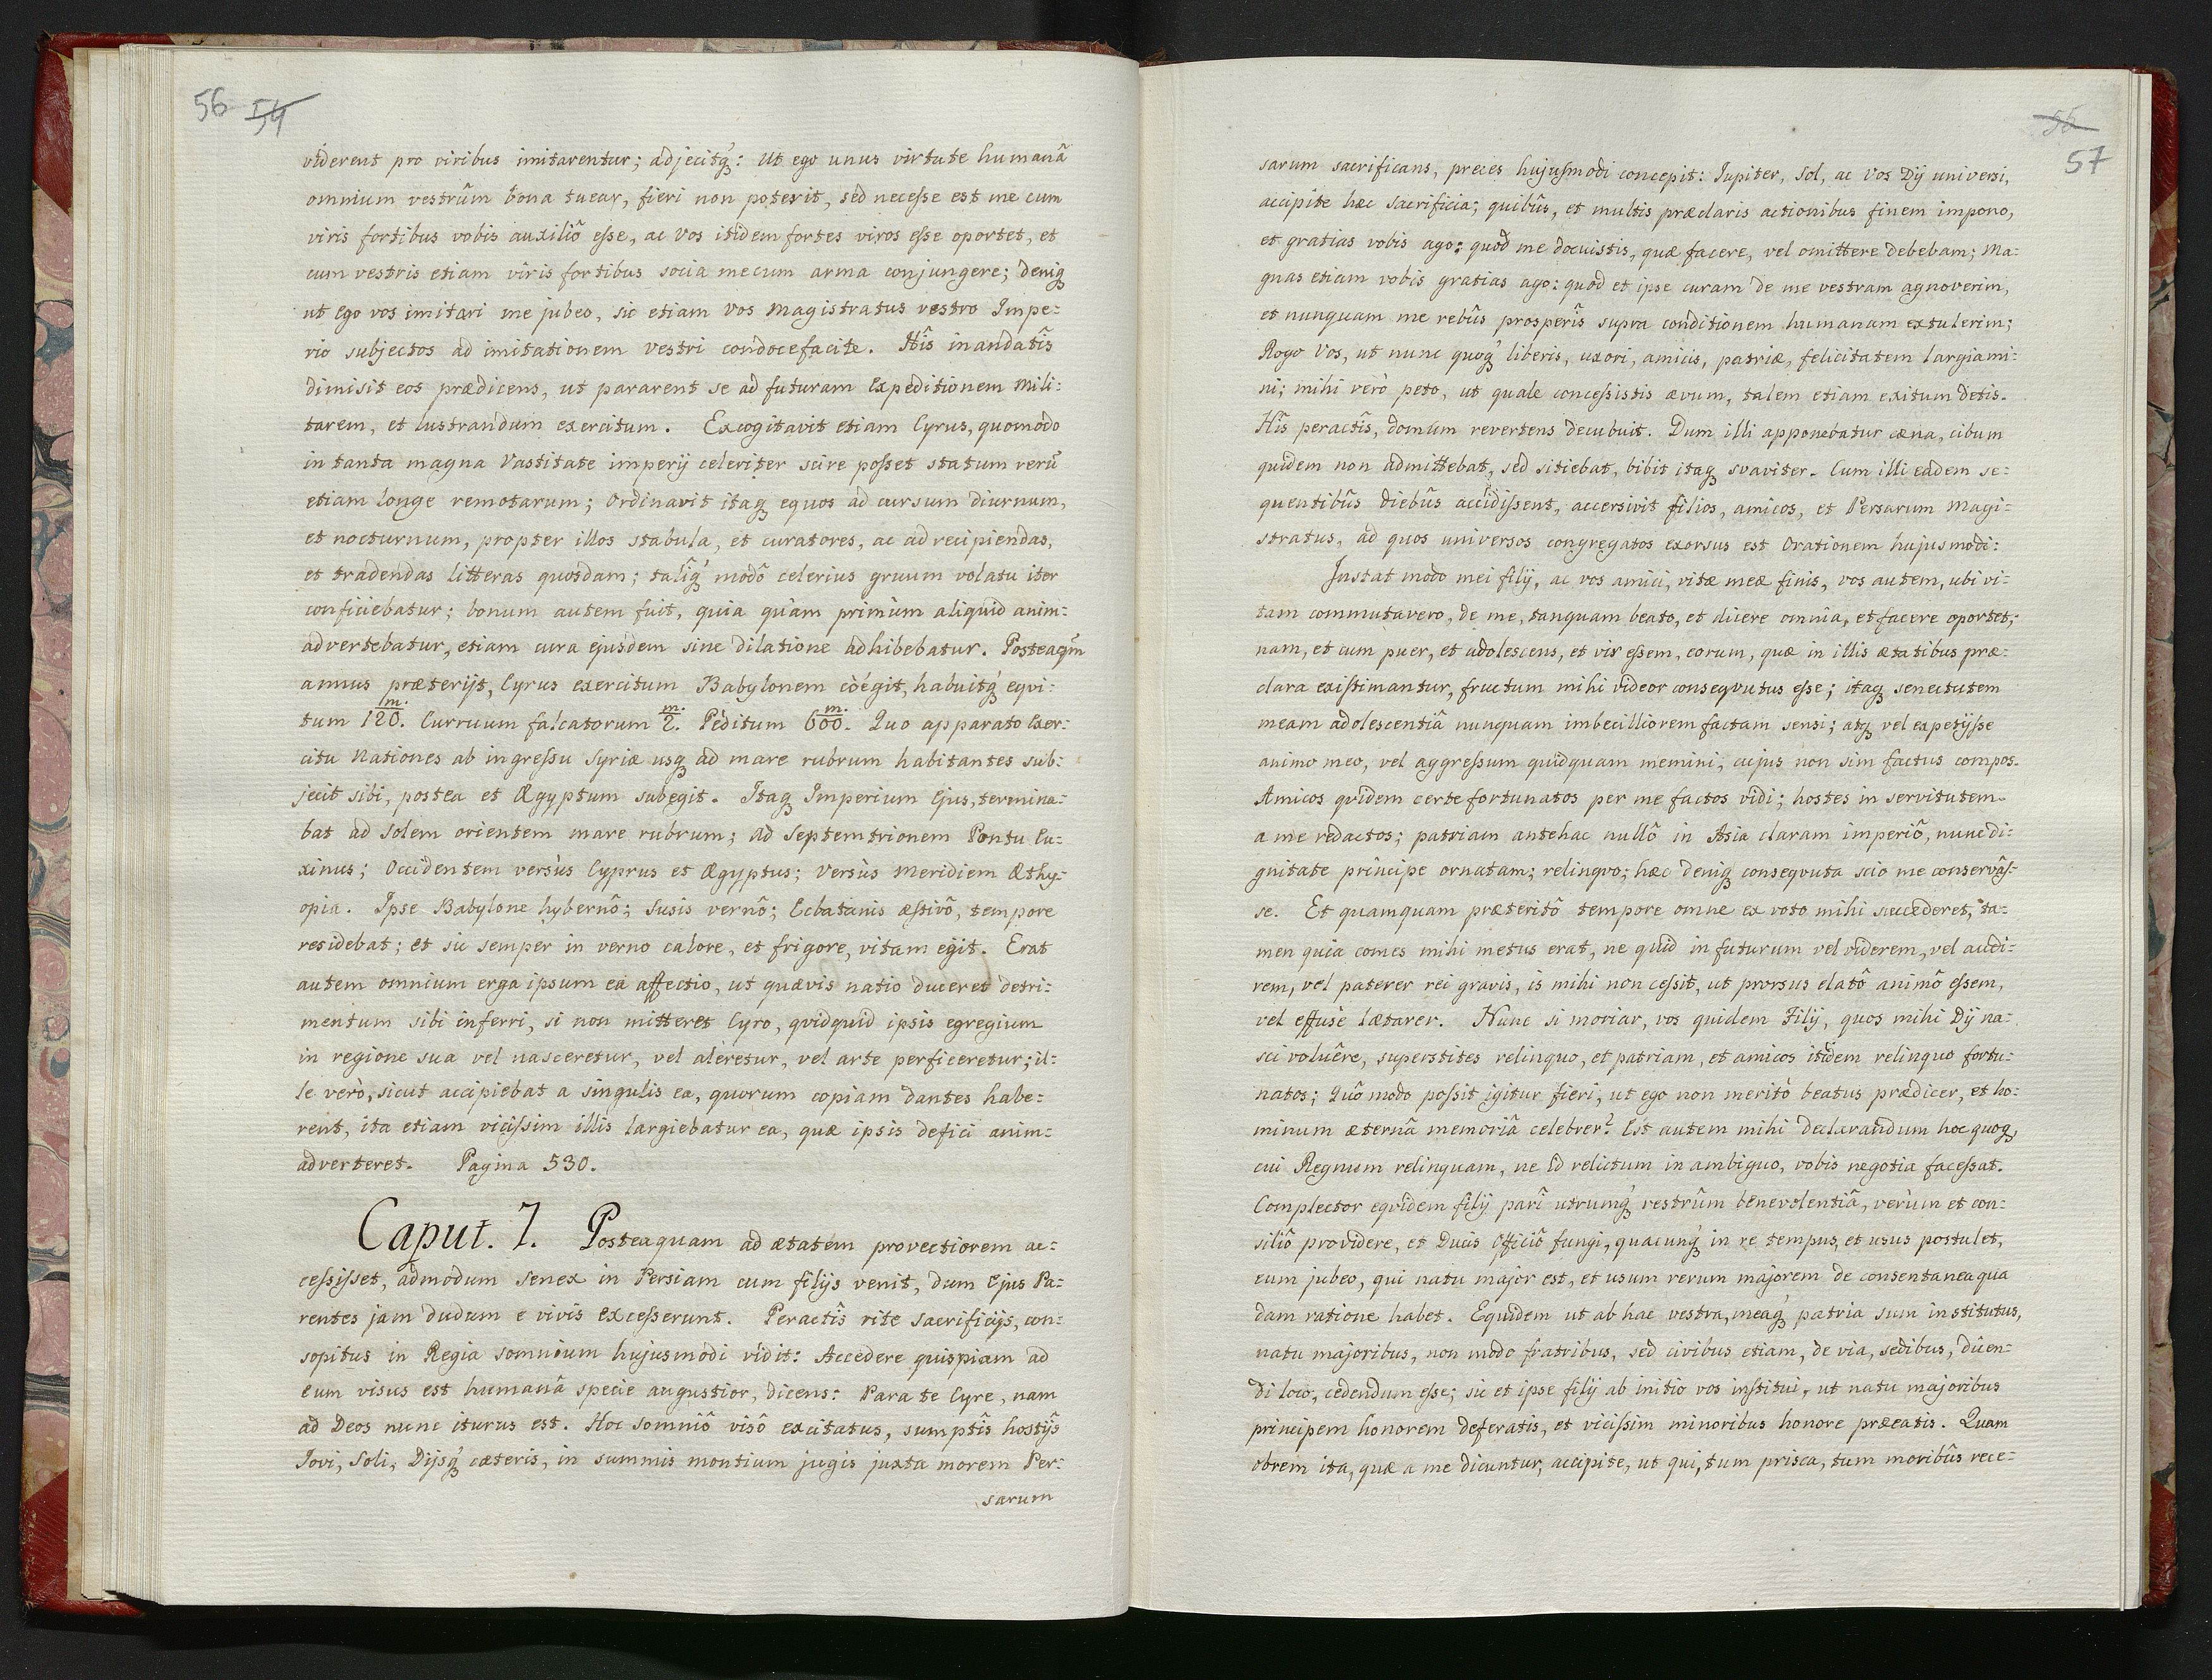 56 54
viderent pro viribus imitarentur; adjecitq́: Ut ego unus virtute humanâ
omnium vestrûm bona tuear, fieri non poterit, sed necesse est me cum
viris fortibus vobis auxiliô esse, ac vos itidem fortes viros esse oportet, et
cum vestris etiam viris fortibus socia mecum arma conjungere; deniq
ut ego vos imitari me jubeo, sic etiam vos Magistratus vestro Impe=
rio subjectos ad imitationem vestri condocefacite. Hîs inandatîs
dimisit eos prædicens, ut pararent se ad futuram expeditionem mili=
tarem, et lustrandum exercitum. Excogitavit etiam Cyrus, quomodo
in tanta magna vastitate imperij celeriter scire posset statum rerũ
etiam longe remotarum; Ordinavit itaq equos ad cursum diurnum,
et nocturnum, propter illos stabula, et curatores, ac ad recipiendas,
et tradendas litteras quosdam; talîq́ modô celerius gruum volatu iter
conficiebatur; bonum autem fuit, quia quàm primùm aliquid anim=
advertebatur, etiam cura ejusdem sine dilatione adhibebatur. Posteaqm̃
annus præterijt, Cyrus exercitum Babylonem coëgit, habuitq́ eqvi=
tum 120.m. Curruum falcatorum 2.m. Peditum 600.m. Quo apparato exer=
citu Nationes ab ingressu Syriæ usq ad mare rubrum habitantes sub=
jecit sibi, postea et Ægyptum subegit. Itaq Imperium ejus, termina=
bat ad Solem orientem mare rubrum; ad Septemtrionem Pontu Eu=
xinus; Occidentem versùs Cyprus et Ægyptus; versùs Meridiem Æthy=
opia. Ipse Babylone hybernô; Susis vernô; Ecbatanis æstivô, tempore
residebat; et sic semper in verno calore, et frigore, vitam egit. Erat
autem omnium erga ipsum ea affectio, ut quævis natio duceret detri=
mentum sibi inferri, si non mitteret Cyro, qvidquid ipsis egregium
in regione sua vel nasceretur, vel aleretur, vel arte perficeretur; il=
le verò, sicut accipiebat a singulis ea, quorum copiam dantes habe=
rent, ita etiam vicissim illis largiebatur ea, quæ ipsis defici anim=
adverteret. Pagina 530.
Caput. 7. Posteaquam ad ætatem provectiorem ac=
cessisset, admodum senex in Persiam cum filijs venit, dum ejus Pa=
rentes jam dudum e vivis excesserunt. Peractîs rite sacrificijs, con=
sopitus in Regia somnium hujusmodi vidit: Accedere quispiam ad
eum visus est humanâ specie augustior, dicens: Para te Cyre, nam
ad Deos nunc iturus est. Hoc somniô visô excitatus, sumptîs hostijs
Jovi, Soli, Dijsq́ cæteris, in summis montium jugis juxta morem Per=
sarum
55
57
sarum sacrificans, preces hujusmodi concepit: Jupiter, Sol, ac vos Dij universi,
accipite hæc sacrificia; quibûs, et multis præclaris actionibus finem impono,
et gratias vobis ago: quod me docuistis, quæ facere, vel omittere debebam; Ma=
gnas etiam vobis gratias ago: quod et ipse curam de me vestram agnoverim,
et nunquam me rebûs prosperîs supra conditionem humanam extulerim;
Rogo vos, ut nunc quoq́ liberis, uxori, amicis, patriæ, felicitatem largiami=
ni; mihi verò peto, ut quale concessistis ævum, talem etiam exitum detis.
Hîs peractîs, domum revertens decubuit. Dum illi apponebatur cæna, cibum
quidem non admittebat, sed sitiebat, bibit itaq svaviter. Cum illi eadem se=
quentibûs diebûs accidissent, accersivit filios, amicos, et Persarum Magi=
stratus, ad quos universos congregatos exorsus est Orationem hujusmodi:
Instat modo mei filij, ac vos amici, vitæ meæ finis, vos autem, ubi vi=
tam commutavero, de me, tanquam beato, et dicere omnia, et facere oportet;
nam, et cum puer, et adolescens, et vir essem, eorum, quæ in illis ætatibus præ=
clara existimantur, fructum mihi videor conseqvutus esse; itaq senectutem
meam adolescentiâ nunquam imbecilliorem factam sensi; atq vel expetijsse
animo meo, vel aggressum quidquam memini, cujus non sim factus compos.
Amicos qvidem certe fortunatos per me factos vidi; hostes in servitutem
a me redactos; patriam antehac nullô in Asia claram imperiô, nunc di=
gnitate principe ornatam; relinqvo; hæc deniq conseqvuta scio me conservâs=
se. Et quamquam præteritô tempore omne ex voto mihi succederet, ta=
men quia comes mihi metus erat, ne quid in futurum vel viderem, vel audi=
rem, vel paterer rei gravis, is mihi non cessit, ut prorsus elatô animô essem,
vel effuse lætarer. Nunc si moriar, vos quidem Filij, quos mihi Dij na=
sci voluêre, superstites relinquo, et patriam, et amicos itidem relinquo fortu=
natos; Quô modo possit igitur fieri, ut ego non meritò beatus prædicer, et ho=
minum æternâ memoriâ celebrer? Est autem mihi declarandum hoc quoq,
cui Regnum relinquam, ne id relictum in ambiguo, vobis negotia facessat.
Complector eqvidem filij parî utrumq́ vestrûm benevolentiâ, verùm et con=
siliô providere, et Ducis officiô fungi, quacunq́ in re tempus, et usus postulet,
eum jubeo, qui natu major est, et usum rerum majorem de consentanea qua
dam ratione habet. Equidem ut ab hac vestra, meaq́ patria sum institutus,
natu majoribus, non modo fratribus, sed civibus etiam, de via, sedibus, dicen=
di loco, cedendum esse; sic et ipse filij ab initio vos institui, ut natu majoribus
principem honorem deferatis, et vicissim minoribus honore præeatis. Quam
obrem ita, quæ a me dicuntur, accipite, ut qui, tum prisca, tum moribûs rece=